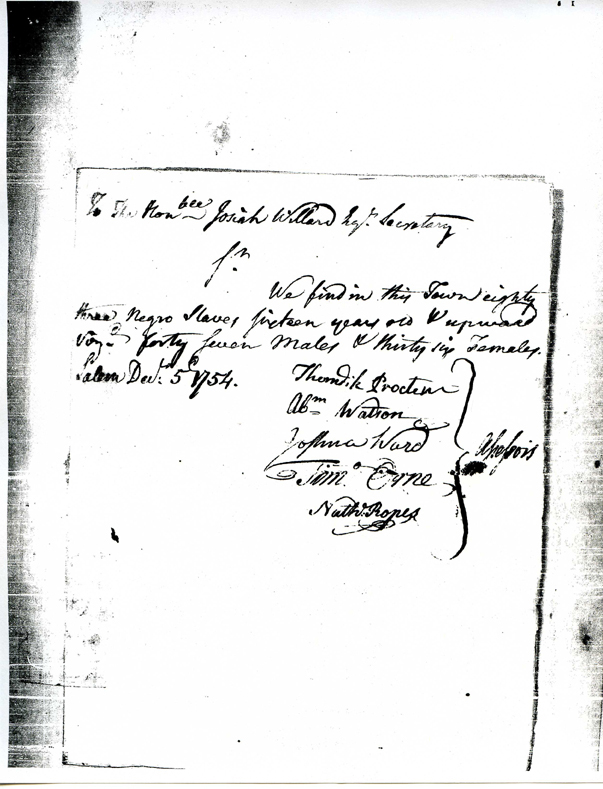 To The Hon^ble Josiah Willard Esq^r. Secretary
S^r.
We find in this Town eighty
three Negro Slaves sixteen years old & upward
Viz^t. forty seven Males & thirty six Females.
Salem Dec^r. 5^th 1754.
Thorndik Procter
Ab^m Watson
Joshua Ward
Tim^o Orne
Nath^l. Ropes
Assessors